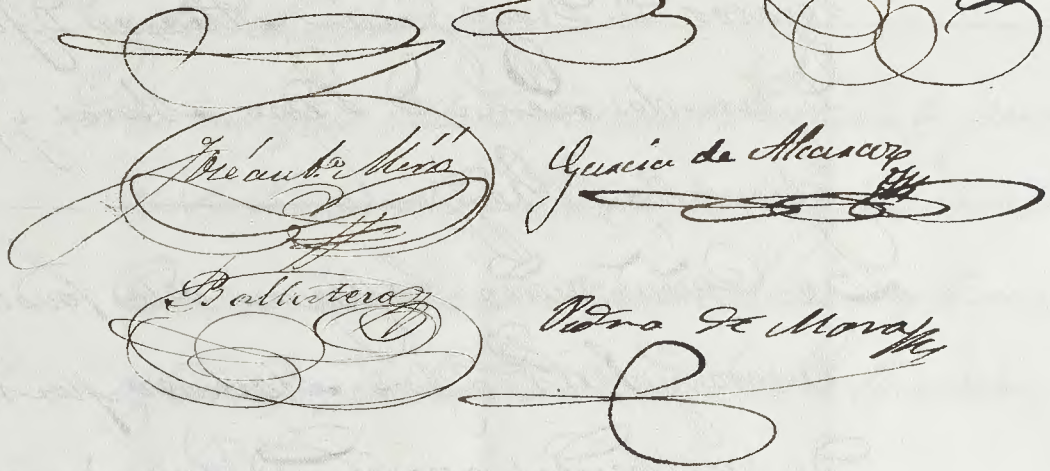 José Antº Miró
Garcia de Alcaraz
Ballesteros
Pedro de Mora